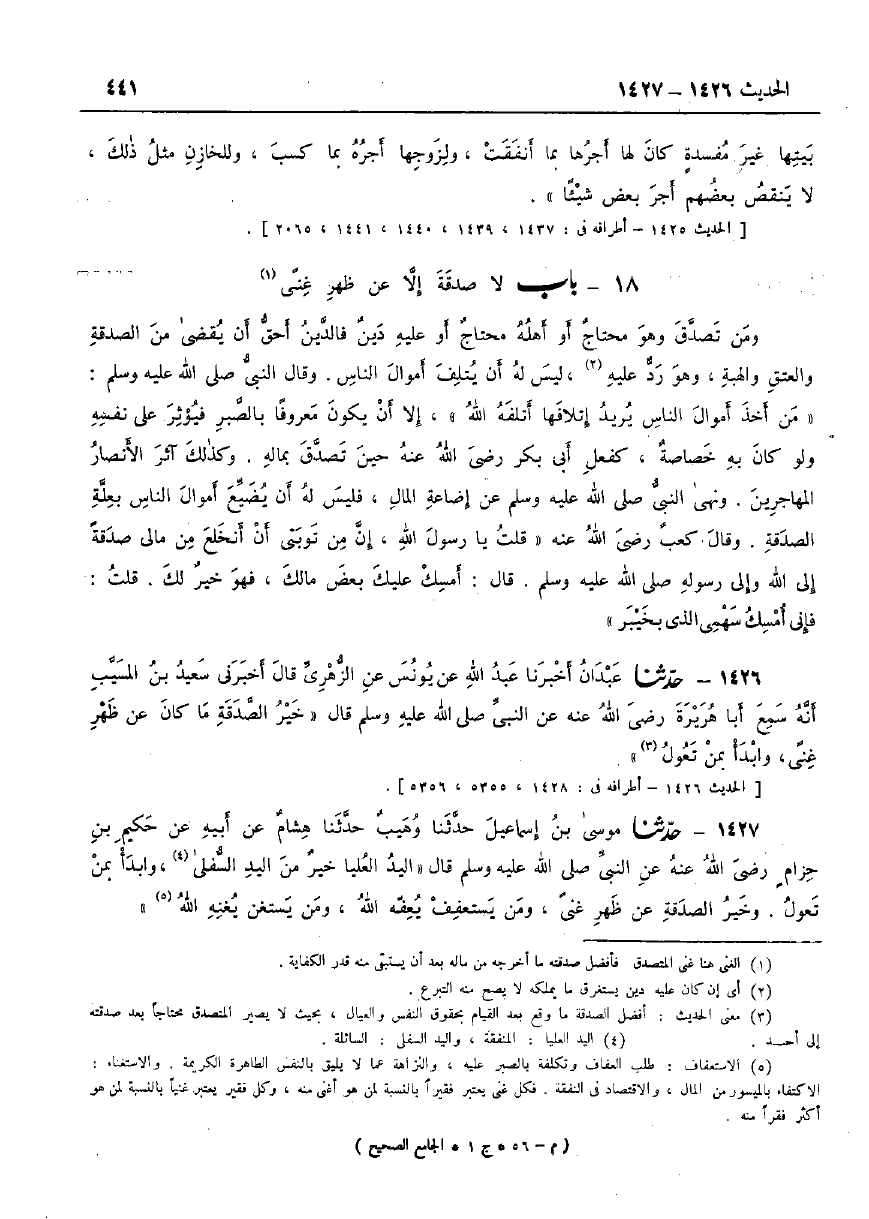 الحديث ١٤٢٦ – ١٤٢٧ ٤٤١
بَيتِها غيرَ مُفسدةٍ كانَ لها أجرُها بما أنفَقَتْ ، ولِزَوجِها أجرُهُ بما كسبَ ، وللخازِنِ مثلُ ذٰلكَ ،
لا يَنقصُ بعضُهم أجرَ بعض شيْئًا » .
[ الحديث ١٤٢٥ – أطرافه فى : ١٤٣٧ ، ١٤٣٩ ، ١٤٤٠ ، ١٤٤١ ، ٢٠٦٥ ] .
١٨ – باب لا صدقَةَ إلَّا عن ظهرِ غِنًى (١)
ومَن تَصدَّقَ وهوَ محتاجٌ أو أهلُهُ محتاجٌ أو عليهِ دَينٌ فالدَّينُ أحقُّ أن يُقضىٰ منَ الصدقةِ
والعتقِ والهبةِ ، وهوَ رَدٌّ عليهِ (٢) ، ليسَ لهُ أن يُتلِفَ أموالَ الناسِ . وقال النبىُّ صلى الله عليه وسلم :
« مَن أخذَ أموالَ الناسِ يُريدُ إتلافَها أتلفَهُ اللهُ » ، إلا أنْ يكونَ مَعروفًا بالصَّبرِ فيُؤثِرَ على نفسِهِ
ولو كانَ بهِ خَصاصةٌ ، كفعلِ أبى بكر رضىَ اللهُ عنهُ حينَ تَصدَّقَ بمالهِ . وكذٰلكَ آثرَ الأنصارُ
المهاجرينَ . ونهىٰ النبىُّ صلى اللهُ عليه وسلم عن إضاعةِ المالِ ، فليسَ لهُ أن يُضَيِّعَ أموالَ الناسِ بِعلَّةِ
الصدَقةِ . وقالَ كعبٌ رضىَ اللهُ عنه « قلتُ يا رسولَ اللهِ ، إنَّ مِن تَوبَتى أنْ أنخلعَ مِن مالى صدقةً
إلى اللهِ وإلى رسولهِ صلى الله عليه وسلم . قال : أمسِكْ عليكَ بعضَ مالكَ ، فهوَ خيرٌ لكَ . قلتُ :
فإنى أُمْسِكُ سَهْمِى الذى بخَيْبَر »
١٤٢٦ – حدّثنا عَبْدَانُ أخْبرَنَا عَبدُ اللهِ عن يُونُسَ عنِ الزُّهْرِىِّ قالَ أخبَرَنى سَعيدُ بنُ المسَيَّبِ
أنَّهُ سَمِعَ أبا هُرَيْرَةَ رضىَ اللهُ عنه عن النبىِّ صلى الله عليهِ وسلم قال « خَيْرُ الصَّدَقَةِ مَا كانَ عن ظَهْرِ
غِنًى ، وابْدَأْ بمنْ تَعُولُ (٣) » .
[ الحديث ١٤٢٦ – أطرافه فى : ١٤٢٨ ، ٥٣٥٥ ، ٥٣٥٦ ] .
١٤٢٧ – حدّثنا موسىٰ بنُ إسماعيلَ حدَّثَنا وُهَيبٌ حدَّثَنا هِشامٌ عن أبيهِ عن حَكيمِ بنِ
حِزامٍ رضىَ اللهُ عنهُ عنِ النبىِّ صلى الله عليه وسلم قال « اليدُ العُليا خيرٌ منَ اليدِ السُّفلىٰ (٤) ، وابدَأْ بمنْ
تَعولُ . وخَيرُ الصدَقةِ عن ظَهرِ غنىً ، ومَن يَستعفِفْ يُعِفَّه اللهُ ، ومَن يَستغنِ يُغنِهِ اللهُ (٥) »
(١) الغنى هنا غنى المتصدق فأفضل صدقته ما أخرجه من ماله بعد أن يستبقى منه قدر الكفاية .
(٢) أى إن كان عليه دين يستغرق ما يملكه لا يصح منه التبرع .
(٣) معنى الحديث : أفضل الصدقة ما وقع بعد القيام بحقوق النفس والعيال ، بحيث لا يصير المتصدق محتاجاً بعد صدقته
إلى أحد . (٤) اليد العليا : المنفقة ، واليد السفلى : السائلة .
(٥) الاستعفاف : طلب العفاف وتكلفة بالصبر عليه ، والنزاهة عما لا يليق بالنفس الطاهرة الكريمة . والاستغناء :
الاكتفاء بالميسور من المال ، والاقتصاد فى النفقة . فكل غنى يعتبر فقيراً بالنسبة لمن هو أغنى منه ، وكل فقير يعتبر غنياً بالنسبة لمن هو
أكثر فقراً منه .
( م – ٥٦ * ج ١ * الجامع الصحيح )